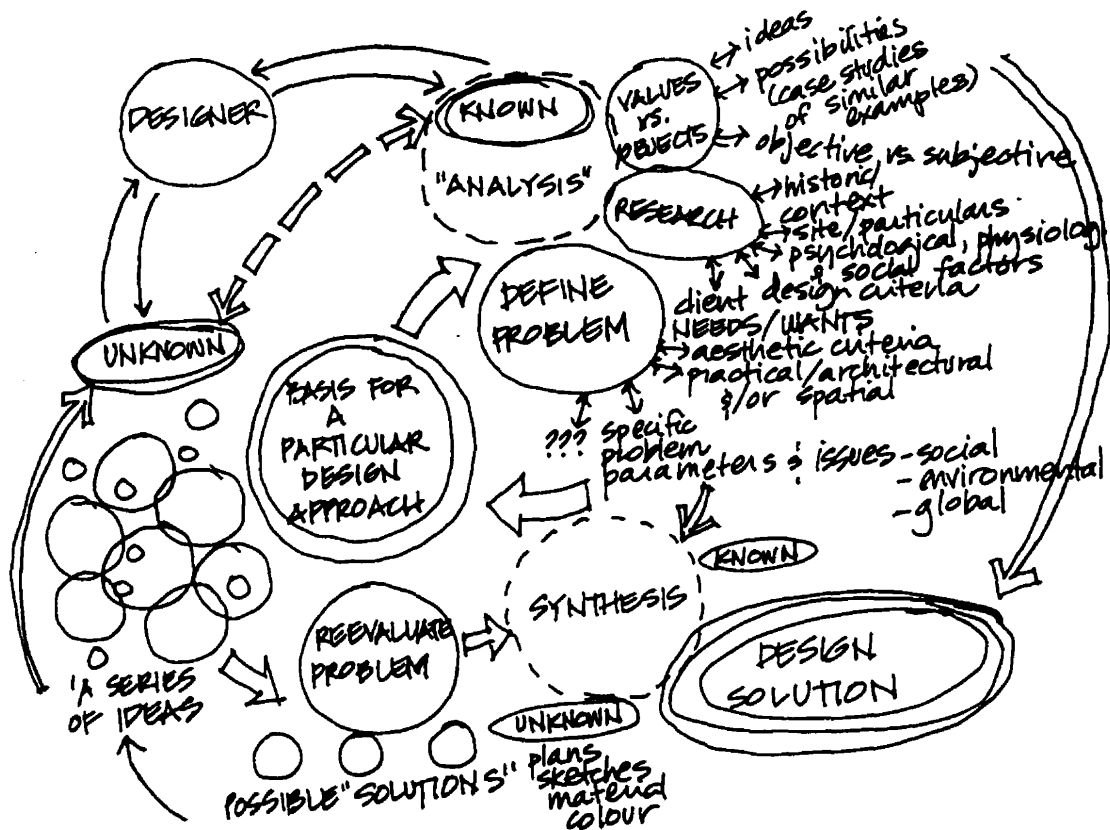 DESIGNER
KNOWN
"ANALYSIS"
VALUES
vs.
REJECTS
ideas
possibilities
(case studies
of similar
examples)
objective vs subjective
RESEARCH
historic/
context
site/particulars
psychological, physiolog
& social factors
design criteria
client
NEEDS/WANTS
aesthetic criteria
practical/architectural
&/or spatial
DEFINE
PROBLEM
???
specific
problem
parameters & issues - social
- environmental
- global
UNKNOWN
BASIS FOR
A
PARTICULAR
DESIGN
APPROACH
KNOWN
SYNTHESIS
REEVALUATE
PROBLEM
DESIGN
SOLUTION
'A SERIES
OF IDEAS
UNKNOWN
POSSIBLE "SOLUTIONS"
plans
sketches
material
colour